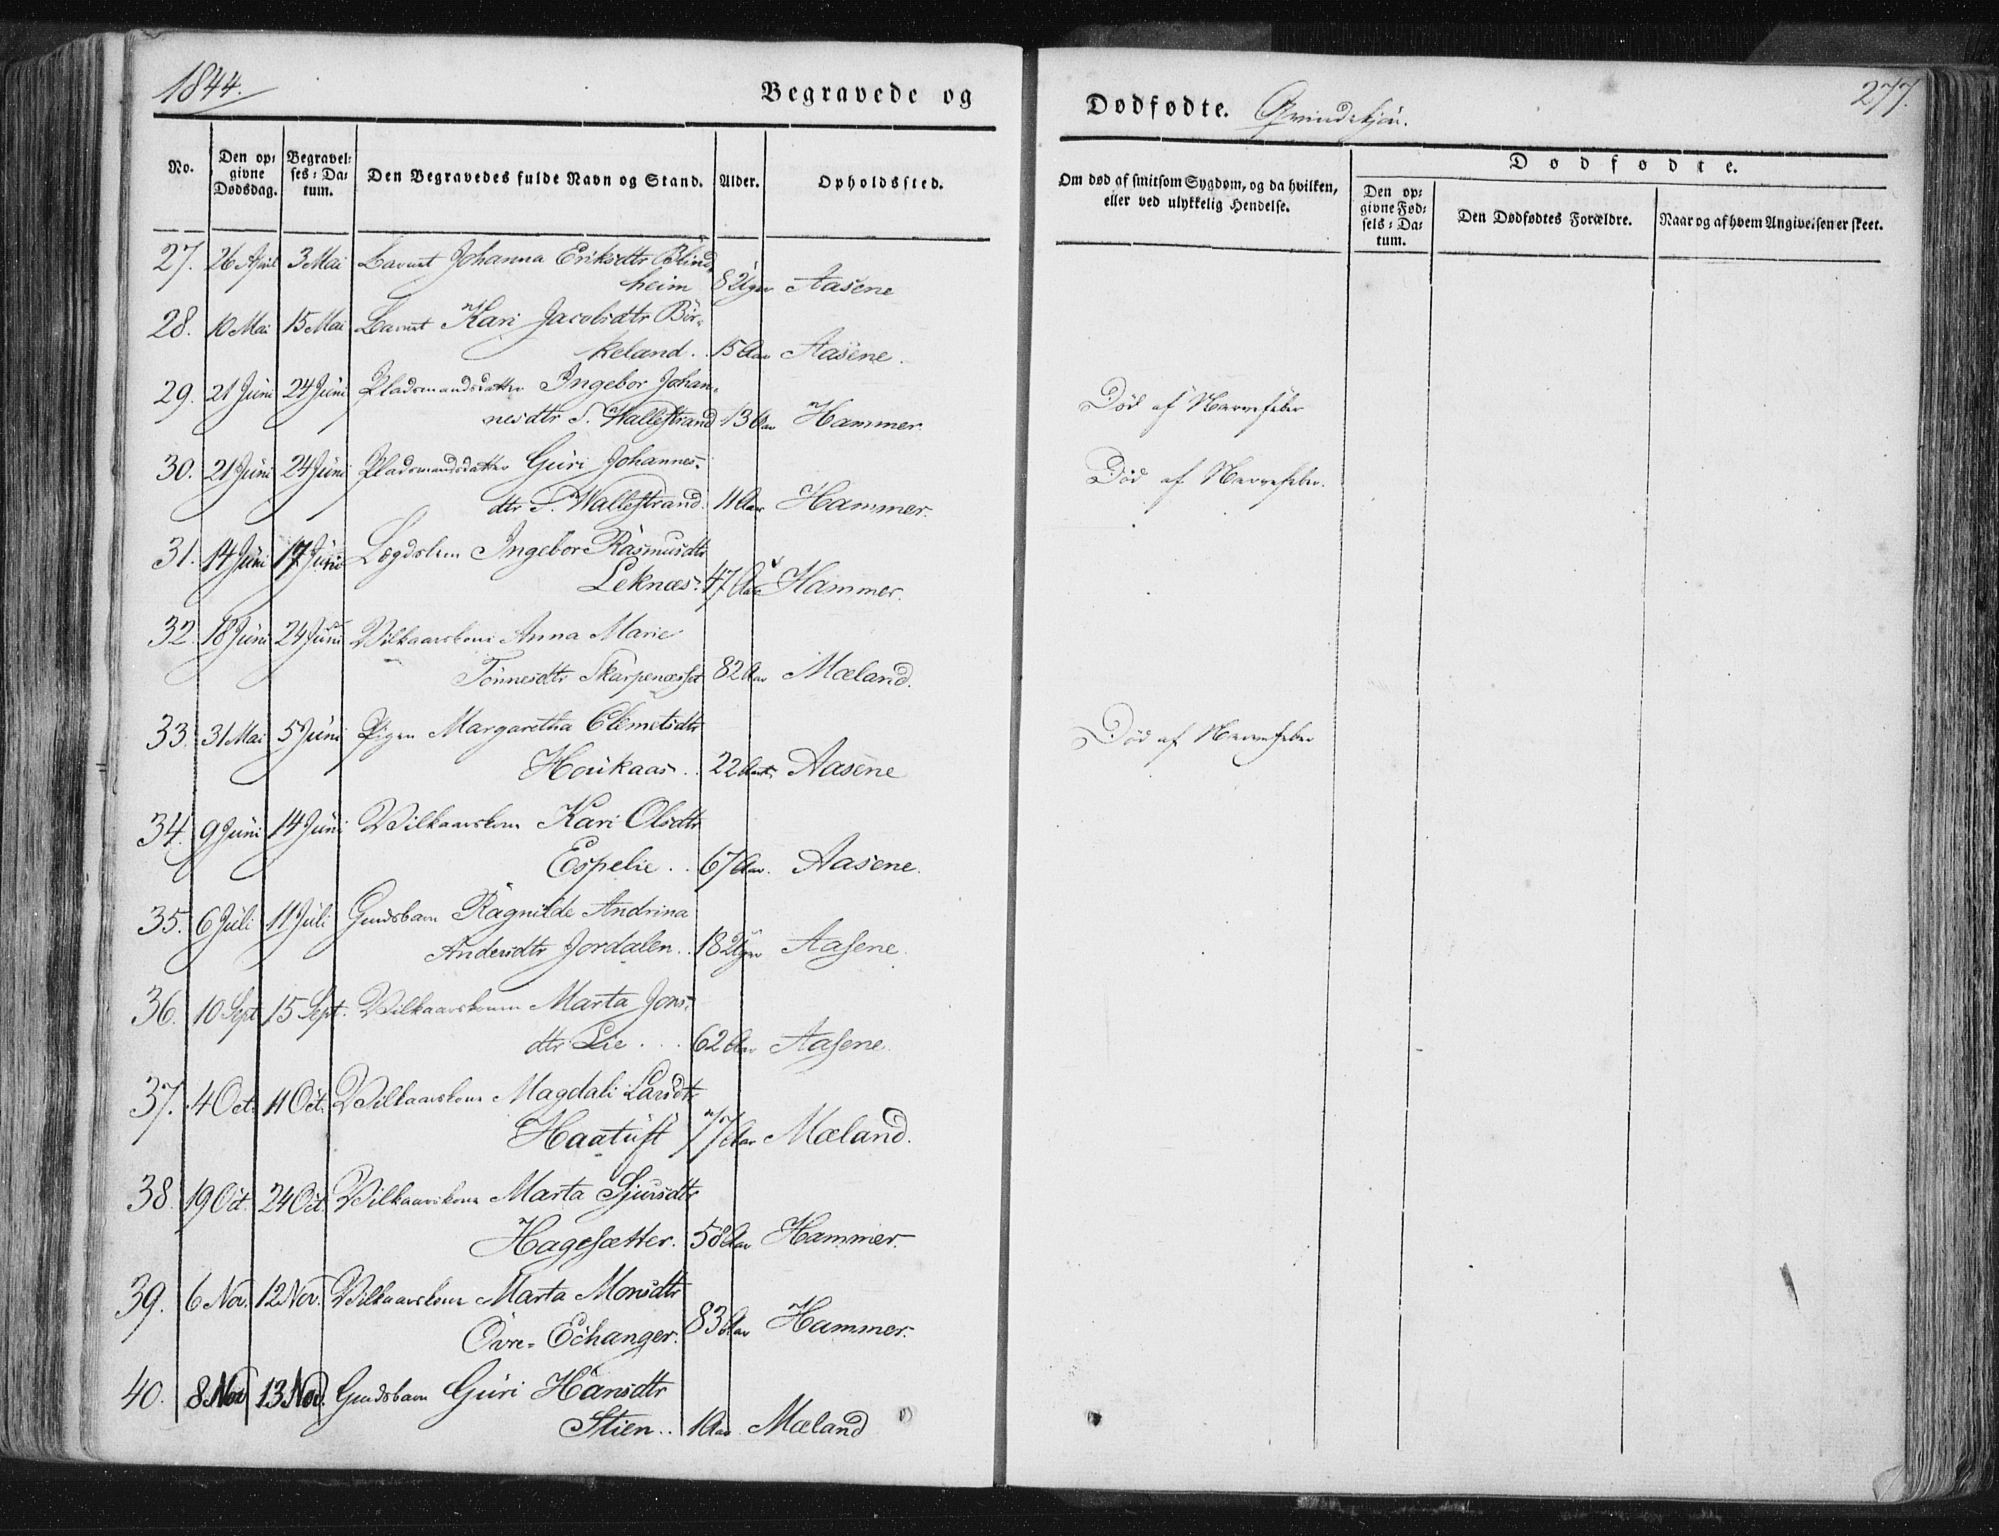 1844.
Begravede og
Dødfødte. Qvindekjøn.
277.
No.
Den opgivne Dødsdag.
Begravelses-Datum.
Den Begravedes fulde Navn og Stand.
Alder.
Opholdssted.
Om død af smitsom Sygdom, og da hvilken, eller ved ulykkelig Hendelse.
Dødfødte.
Den opgivne Fødsels-Datum.
Den Dødfødtes Forældre.
Naar og af hvem Angivelsen er skeet.
27. 26 April 3 Mai Johanna Eriksdtr Blind
heim 8 Uger Aasene
28. 10 Mai 15 Mai Kari Jacobsdtr Bir-
keland. 15 Aar Aasene.
29. 21 Juni 24 Juni Pladsmandsdatter Ingebor Johan-
nesdtr S. Wallestrand 13 Aar Hammer. Död af Nervefeber
30. 21 Juni 24 Juni Pladsmandsdatter Guri Johannes-
dtr S. Wallestrand. 11 Aar Hammer. Död af Nervefeber.
31. 14 Juni 17 Juni Lægdslem Ingebor Rasmusdtr
Leknæs. 47 Aar Hammer.
32. 18 Juni 24 Juni Vilkaarskone Anna Marie
Tönnesdtr Skarpenæsset 82 Aar Mæland.
33. 31 Mai 5 Juni Pigen Margaretha Clemetsdtr
Houkaas.. 22 Aar Aasene Död af Nervefeber
34. 9 Juni 14 Juni Vilkaarskone Kari Olsdtr
Espelie.. 67 Aar. Aasene.
35. 6 Juli 11 Juli Gmdsbarn Ragnilde Andrina
Andersdtr Jordalen.. 18 Uger Aasene.
36. 10 Sept 15 Sept. Vilkaarskonen Marta Jons-
dtr Lie... 62 Aar Aasene.
37. 4 Oct. 11 Oct. Vilkaarskone Magdali Larsdtr
Haatuft 77 Aar Mæland.
38. 19 Oct. 24 Oct. Vilkaarskone Marta Sjursdtr
Hagesætter. 58 Aar Hammer.
39. 6 Nov. 12 Nov. Vilkaarskone Marta Monsdtr
Övre-Echanger. 83 Aar Hammer.
40. 8 Nov 13 Nov. Gmdsbarn Guri Hansdtr
Stien.. 1 Aar. Mæland